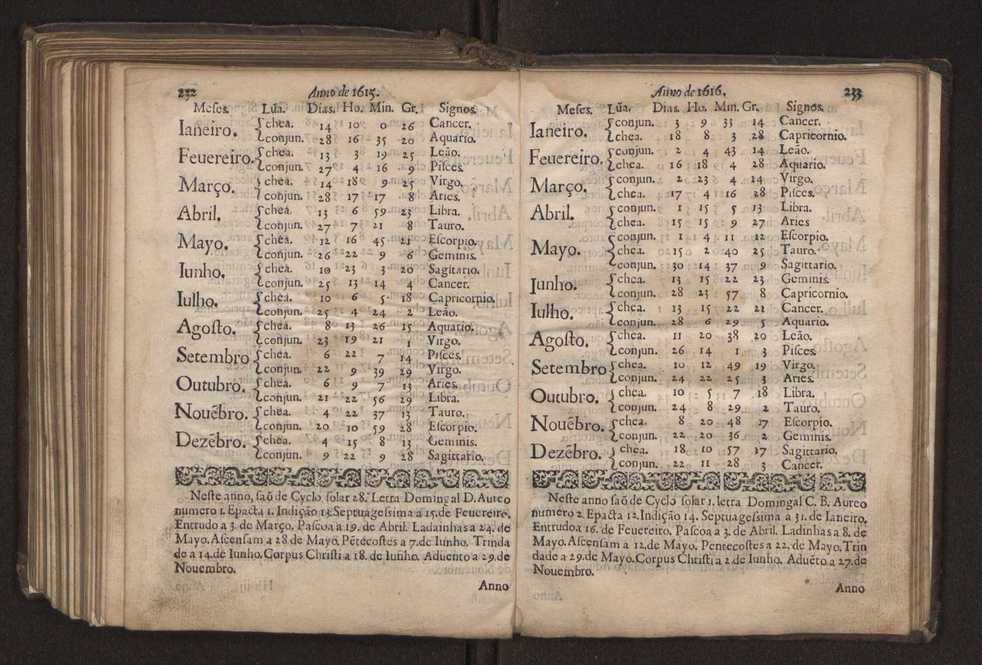 232
Anno de 1615.
Meses. Lũa. Dias. Ho. Min. Gr. Signos.
Ianeiro. chea. 14 10 0 26 Cancer.
conjun. 28 16 35 20 Aquario.
Feuereiro. chea. 13 3 19 25 Leão.
conjun. 27 4 16 9 Pisces.
Março. chea. 14 18 9 25 Virgo.
conjun. 28 17 17 8 Aries.
Abril. chea. 13 6 59 23 Libra.
conjun. 27 7 21 8 Tauro.
Mayo. chea. 12 16 45 21 Escorpio.
conjun. 26 22 9 6 Geminis.
Iunho. chea. 10 23 3 20 Sagitario.
conjun. 25 13 14 4 Cancer.
Iulho. chea. 10 6 5 18 Capricornio.
conjun. 25 4 24 2 Leão.
Agosto. chea. 8 13 26 15 Aquario.
conjun. 23 19 21 1 Virgo.
Setembro chea. 6 22 7 14 Pisces.
conjun. 22 9 39 29 Virgo.
Outubro. chea. 6 9 7 13 Aries.
conjun. 21 22 56 29 Libra.
Nouẽbro. chea. 4 22 37 13 Tauro.
conjun. 20 10 59 28 Escorpio.
Dezẽbro. chea. 4 15 8 13 Geminis.
conjun. 9 22 9 28 Sagittario.
Neste anno, saõ de Cyclo solar 28. Letra Domingal D. Aureo
numero 1. Epacta 1. Indição 13. Septuagesima a 15. de Feuereiro.
Entrudo a 3. de Março. Pascoa a 19. de Abril. Ladainhas a 24. de
Mayo. Ascensam a 28 de Mayo. Pẽtecostes a 7. de Iunho. Trinda
de a 14. de Iunho. Corpus Christi a 18. de Iunho. Aduento a 29. de
Nouembro.
Anno
Anno de 1616.
233
Meses. Lũa. Dias. Ho. Min. Gr. Signos.
Ianeiro. conjun. 3 9 33 14 Cancer.
chea. 18 8 3 28 Capricornio.
Feuereiro. conjun. 2 4 43 14 Leão.
chea. 16 18 4 28 Aquario.
Março. conjun. 2 23 4 14 Virgo.
chea. 17 4 16 28 Pisces.
Abril. conjun. 1 15 5 13 Libra.
chea. 15 15 9 27 Aries
Mayo. conjun. 1 4 11 12 Escorpio.
chea. 15 2 40 25 Tauro.
conjun. 30 14 37 9 Sagittario.
Iunho. chea. 13 15 22 23 Geminis.
conjun. 28 23 57 8 Capricornio.
Iulho. chea. 13 15 22 21 Cancer.
conjun. 28 6 29 5 Aquario.
Agosto. chea. 11 20 38 20 Leão.
conjun. 26 14 1 3 Pisces.
Setembro chea. 10 12 49 19 Virgo.
conjun. 24 22 25 3 Aries.
Outubro. chea. 10 5 7 18 Libra.
conjun. 24 8 29 2 Tauro.
Nouẽbro. chea. 8 20 48 17 Escorpio.
conjun. 22 20 36 2 Geminis.
Dezẽbro. chea. 18 10 57 17 Sagittario.
conjun. 22 11 28 3 Cancer.
Neste anno saõ de Cyclo solar 1. letra Domingal C. B. Aureo
numero 2. Epacta 12. Indição 14. Septuagesima a 31. de Ianeiro.
Entrudo a 16. de Feuereiro. Pascoa a 3. de Abril. Ladinhas a 8. de
Mayo. Ascensam a 12. de Mayo. Pentecostes a 22. de Mayo. Trin
dade a 29. de Mayo. Corpus Christi a 2. de Iunho. Aduẽto a 27. de
Nouembro.
Anno